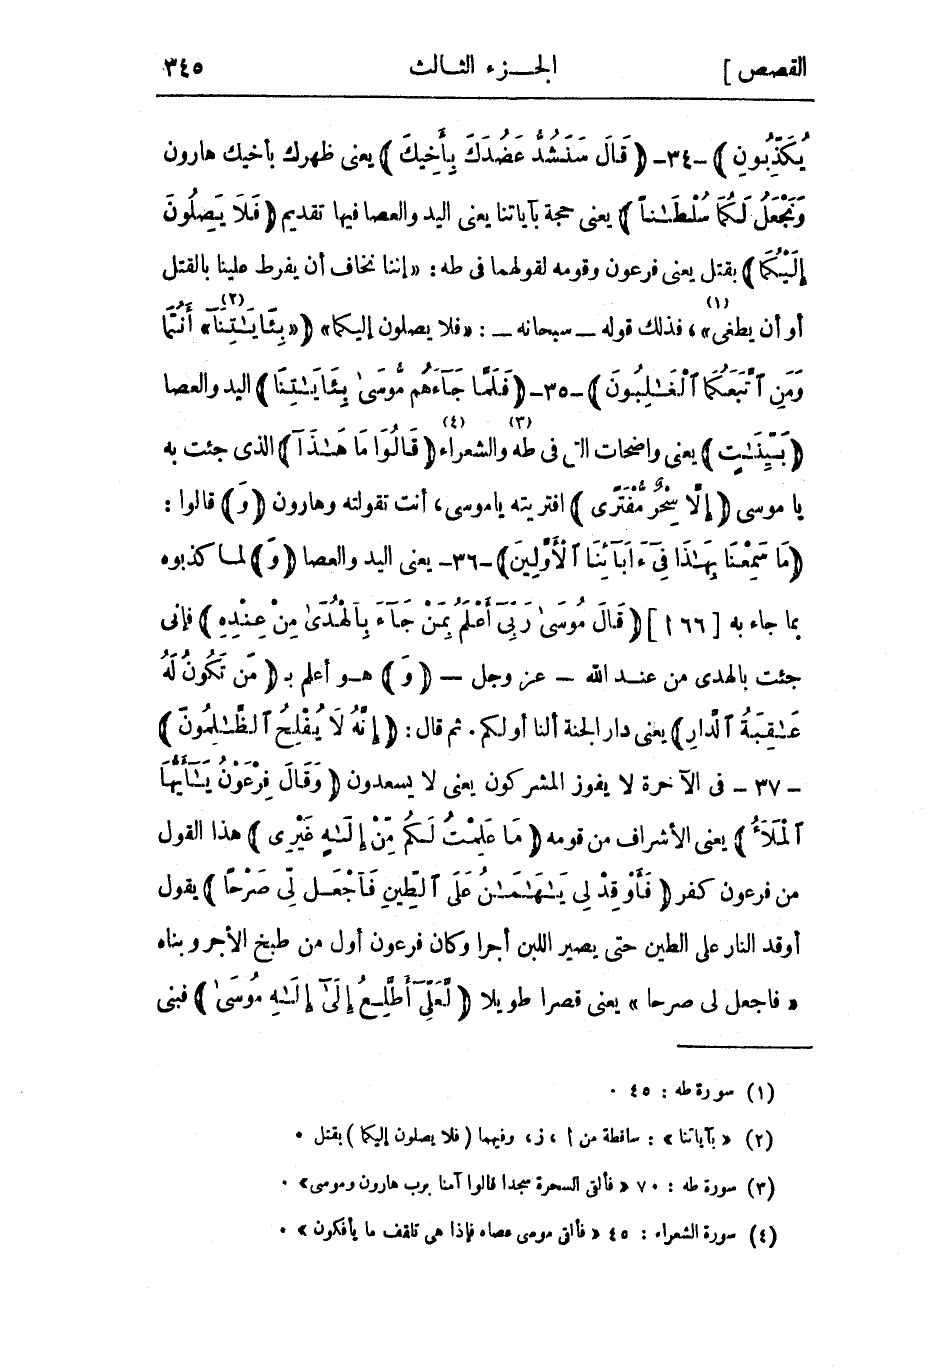 القصص ] الجـــزء الثـالث ٣٤٥
يُكَذِّبُونِ ) -٣٤- ( قَالَ سَنَشُدُّ عَضُدَكَ بِأَخِيكَ ) يعنى ظهرك بأخيك هارون
وَنَجْعَلُ لَكُمَا سُلْطَٰنًا ) يعنى حجة بآياتنا يعنى اليد والعصا فيها تقديم ( فَلَا يَصِلُونَ
إِلَيْكُمَا ) بقتل يعنى فرعون وقومه لقولهما فى طه : « إننا نخاف أن يفرط علينا بالقتل
أو أن يطغى» (١) ، فذلك قوله ــ سبحانه ــ : « فلا يصلون إليكما » ( « بِـَٔايَٰتِنَآ » (٢) أَنتُمَا
وَمَنِ ٱتَّبَعَكُمَا ٱلْغَٰلِبُونَ ) -٣٥- ( فَلَمَّا جَآءَهُم مُّوسَىٰ بِـَٔايَٰتِنَا ) اليد والعصا
( بَيِّنَٰتٍ ) يعنى واضحات التى فى طه (٣) والشعراء (٤) ( قَالُوا مَا هَٰذَآ ) الذى جئت به
يا موسى ( إِلَّا سِحْرٌ مُّفْتَرًى ) افتريته ياموسى، أنت تقولته وهارون ( وَ ) قالوا :
( مَا سَمِعْنَا بِهَٰذَا فِىٓ ءَابَآئِنَا ٱلْأَوَّلِينَ ) -٣٦- يعنى اليد والعصا ( وَ ) لمـا كذبوه
بما جاء به [ ١٦٦ ] ( قَالَ مُوسَىٰ رَبِّىٓ أَعْلَمُ بِمَنْ جَآءَ بِٱلْهُدَىٰ مِنْ عِنْدِهِ ) فإنى
جئت بالهدى من عنــد الله ــ عز وجل ــ ( وَ ) هــو أعلم بـ ( مَن تَكُونُ لَهُ
عَٰقِبَةُ ٱلدَّارِ ) يعنى دار الجنة ألنا أولكم . ثم قال : ( إِنَّهُ لَا يُفْلِحُ ٱلظَّٰلِمُونَ )
- ٣٧ - فى الآخرة لا يفوز المشركون يعنى لا يسعدون ( وَقَالَ فِرْعَوْنُ يَٰٓأَيُّهَا
ٱلْمَلَأُ ) يعنى الأشراف من قومه ( مَا عَلِمْتُ لَكُم مِّنْ إِلَٰهٍ غَيْرِى ) هذا القول
من فرعون كفر ( فَأَوْقِدْ لِى يَٰهَٰمَٰنُ عَلَى ٱلطِّينِ فَٱجْعَل لِّى صَرْحًا ) يقول
أوقد النار على الطين حتى يصير اللبن أجرا وكان فرعون أول من طبخ الأجر وبناه
« فاجعل لى صرحا » يعنى قصرا طويلا ( لَّعَلِّىٓ أَطَّلِعُ إِلَىٰٓ إِلَٰهِ مُوسَىٰ ) فبنى
(١) سورة طه : ٤٥ .
(٢) « بآياتنا » : ساقطة من ا ، ز، وفيهما ( فلا يصلون إليكما ) بقتل .
(٣) سورة طه : ٧٠ « فألقى السحرة سجدا قالوا آمنا برب هارون وموسى» .
(٤) سورة الشعراء : ٤٥ « فألقى موسى عصاه فإذا هى تلقف ما يأفكون » .